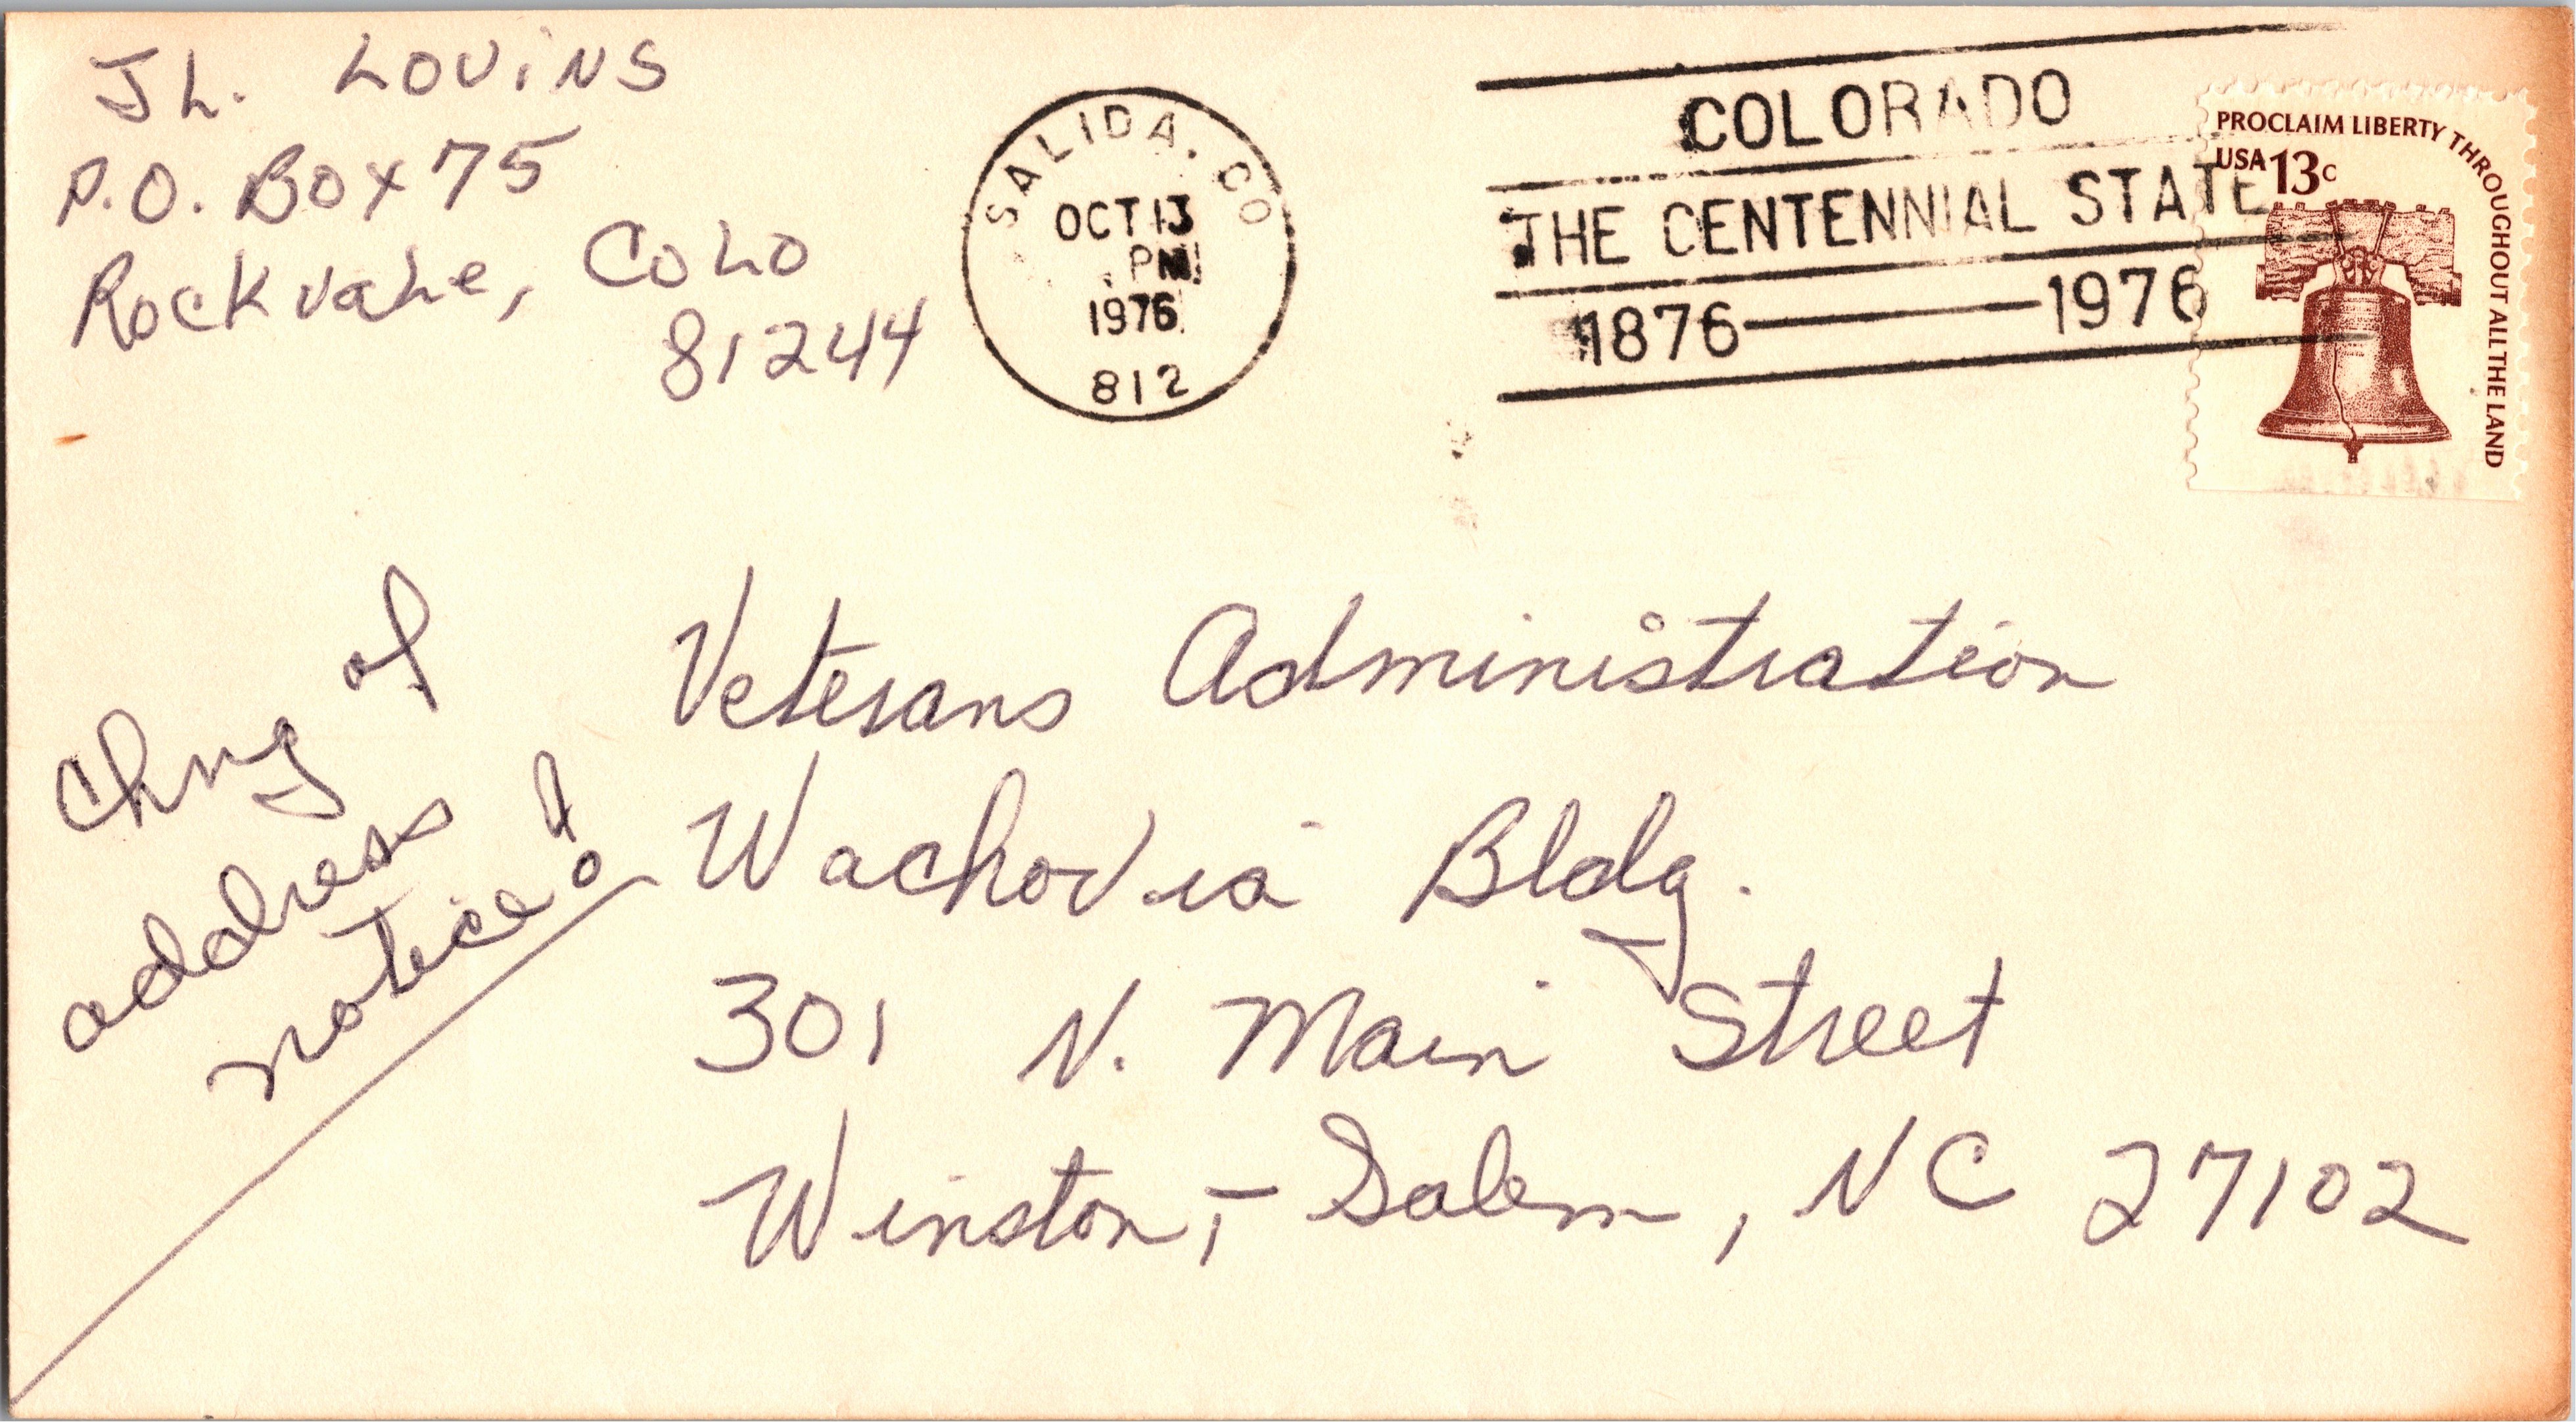 JL. LOVINS
P.O. BOX 75
Rockvale, COLO
81244
SALIDA, CO
OCT 13
PM
1976
812
COLORADO
THE CENTENNIAL STATE
1876 — 1976
PROCLAIM LIBERTY THROUGHOUT ALL THE LAND
USA 13c
Chng of
address
notice!
Veterans Administration
Wachovia Bldg.
301 N. Main Street
Winston,- Salem, NC 27102